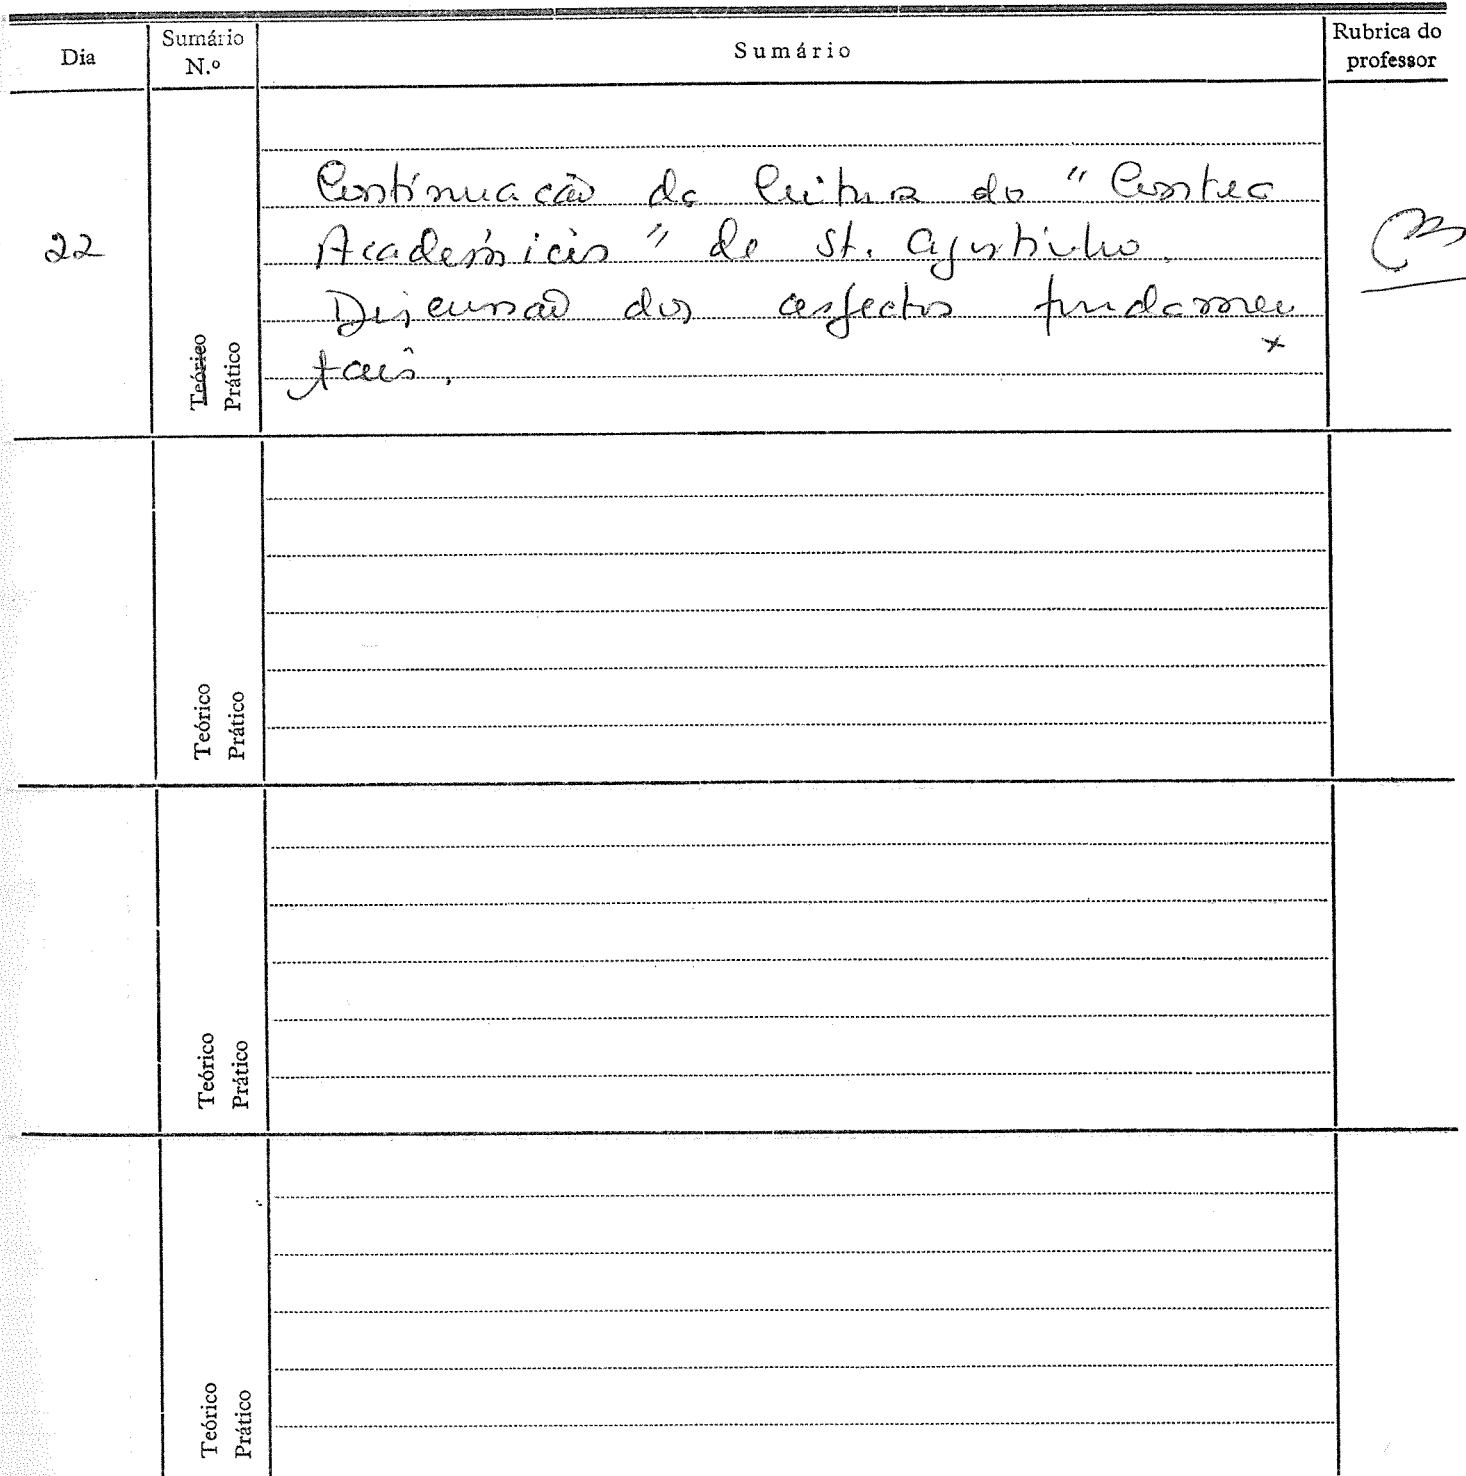 Dia
Sumário
N.º
Sumário
Rubrica do
professor
22
Teórico
Prático
Continuação da leitura do "Contra
Académicos" de St. Agostinho.
Discussão dos aspectos fundamen
tais.
Teórico
Prático
Teórico
Prático
Teórico
Prático